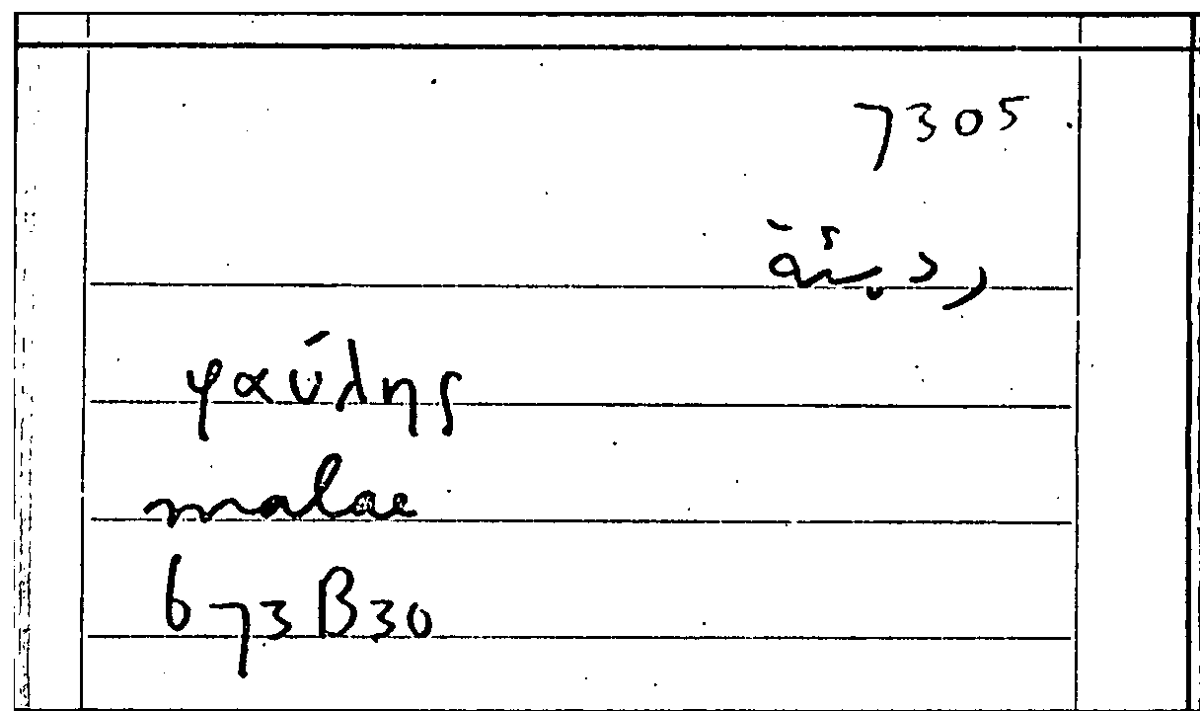 7305
رديئة
φαύλης
malae
673B30